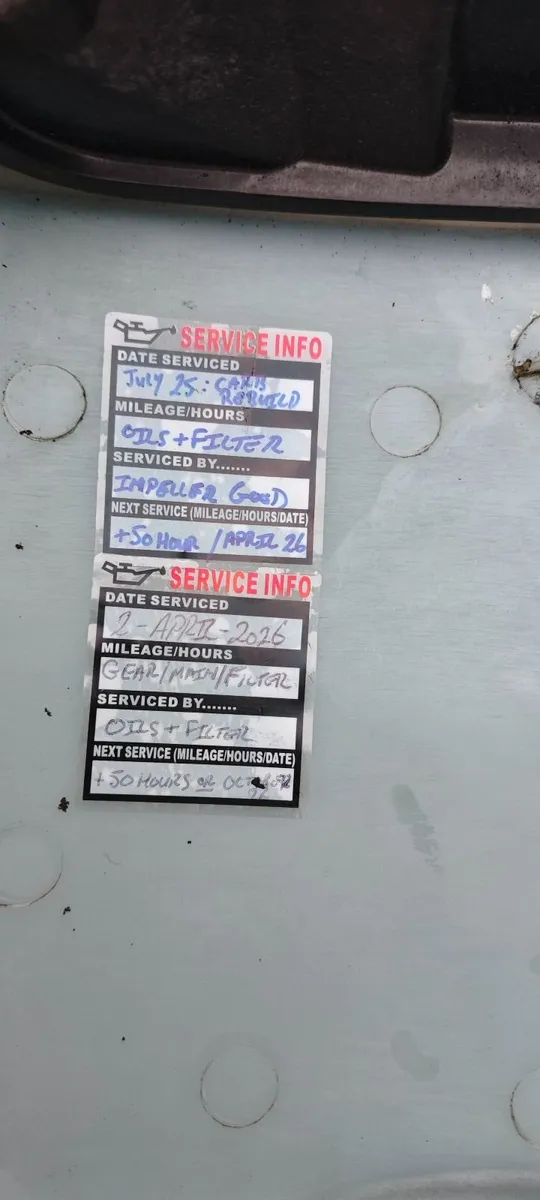 SERVICE INFO
DATE SERVICED
JULY 25: CARB
REBUILD
MILEAGE/HOURS
OILS + FILTER
SERVICED BY.......
IMPELLER GOOD
NEXT SERVICE (MILEAGE/HOURS/DATE)
+50 HOUR / APRIL 26
SERVICE INFO
DATE SERVICED
2-APRIL-2026
MILEAGE/HOURS
GEAR/MAIN/FILTER
SERVICED BY.......
OILS + FILTER
NEXT SERVICE (MILEAGE/HOURS/DATE)
+50 HOURS OR